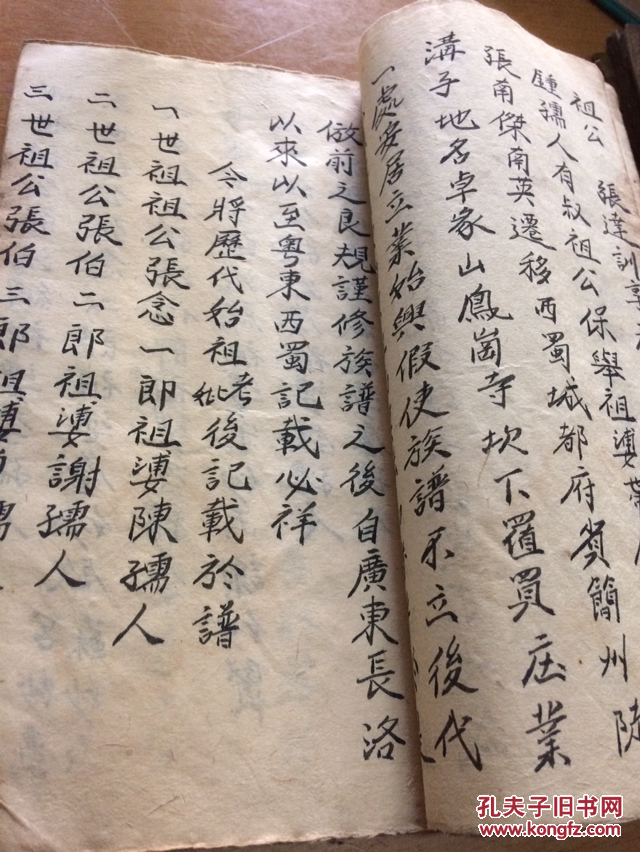 祖公 張達訓
鍾孺人有叔祖公保舉祖婆
張南傑南英遷移西蜀城都府資簡州
溝子地名卓家山鳳崗寺坎下置買庄業
一處安居立業始興假使族譜不立後代
倣前之良規謹修族譜之後自廣東長洛
以來以至粵東西蜀記載必祥
今將歷代始祖考妣後記載於譜
一世祖祖公張念一郎祖婆陳孺人
二世祖公張伯二郎祖婆謝孺人
三世祖公張伯三郎祖婆
孔夫子旧书网
www.kongfz.com